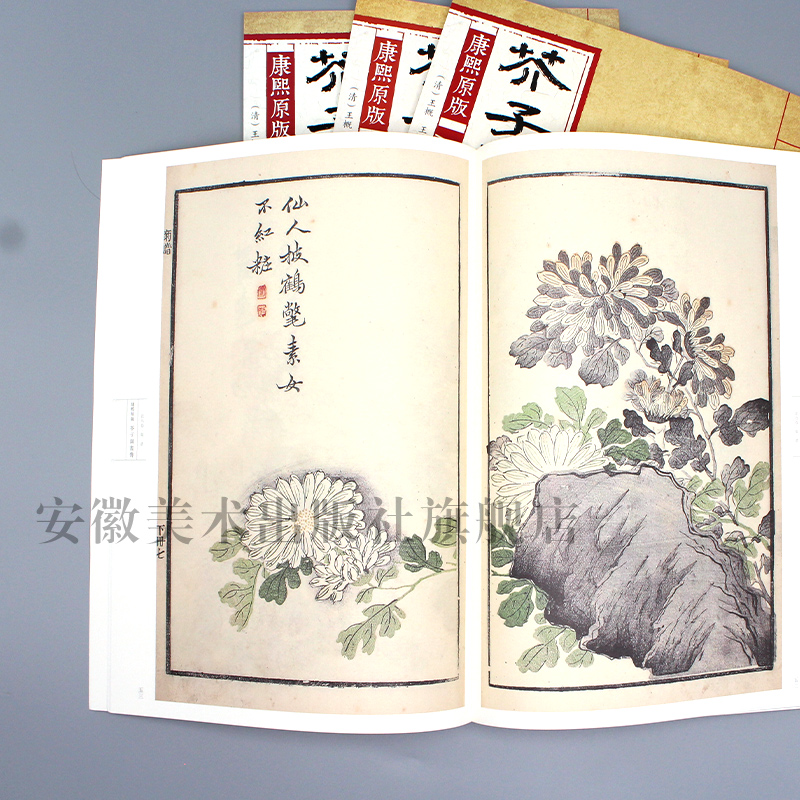 康熙原版
芥子
(清)王
康熙原版
芥子
(清)王概
康熙原版
芥子
(清)王
仙人披鶴氅素女
不紅粧
菊譜
下冊七
安徽美术出版社旗舰店